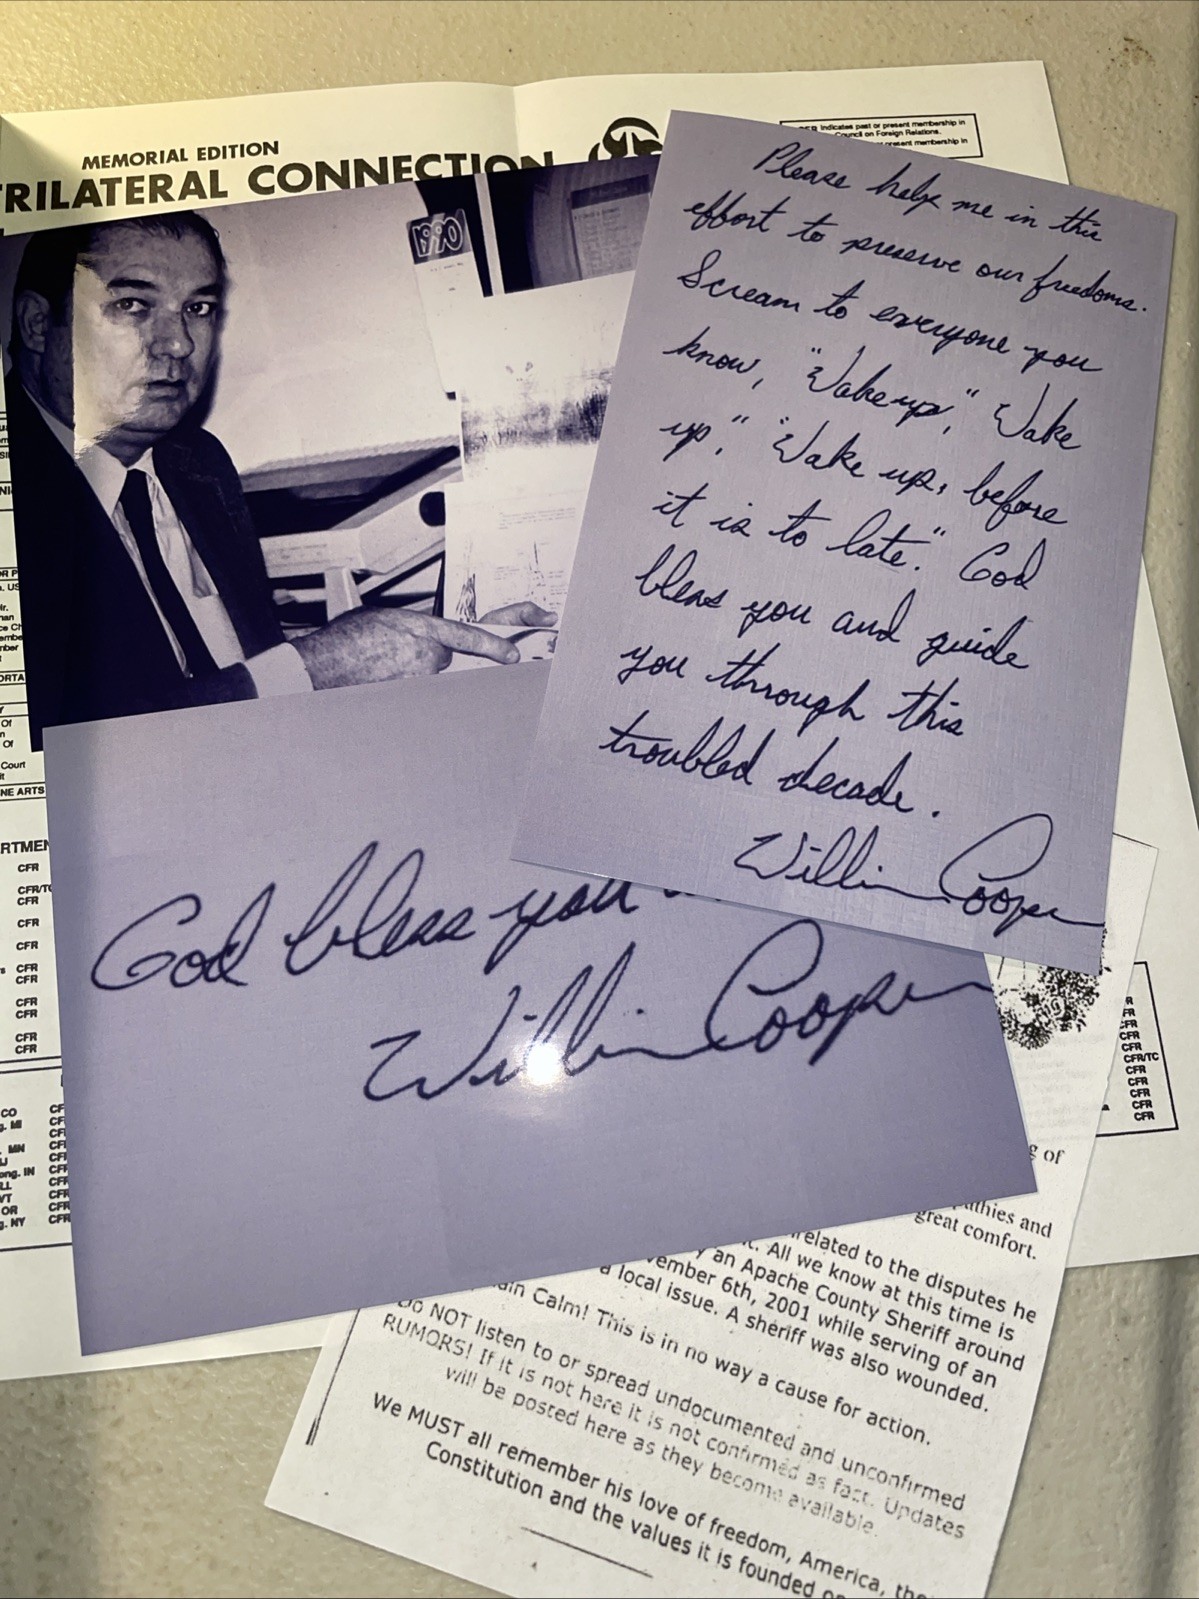 MEMORIAL EDITION
TRILATERAL CONNECTION
indicates past or present membership in
Council on Foreign Relations.
present membership in
1990
Please help me in this
effort to preserve our freedoms.
Scream to everyone you
know, "Wake up," "Wake
up," "Wake up, before
it is to late." God
bless you and guide
you through this
troubled decade.
William Cooper
God bless you
William Cooper
Court
NE ARTS
CFR
CFR/TC
CFR
CFR
CFR
CFR
CFR
CFR
CFR
CFR
CFR
CO
MI
MN
ong. IN
VT
OR
g. NY CFR
CFR
CFR
CFR/TC
CFR
CFR
CFR
CFR
CFR
of
and
great comfort.
related to the disputes he
All we know at this time is
an Apache County Sheriff around
vember 6th, 2001 while serving of an
a local issue. A sheriff was also wounded.
ain Calm! This is in no way a cause for action.
Do NOT listen to or spread undocumented and unconfirmed
RUMORS! If it is not here it is not confirmed as fact. Updates
will be posted here as they become available.
We MUST all remember his love of freedom, America, the
Constitution and the values it is founded on